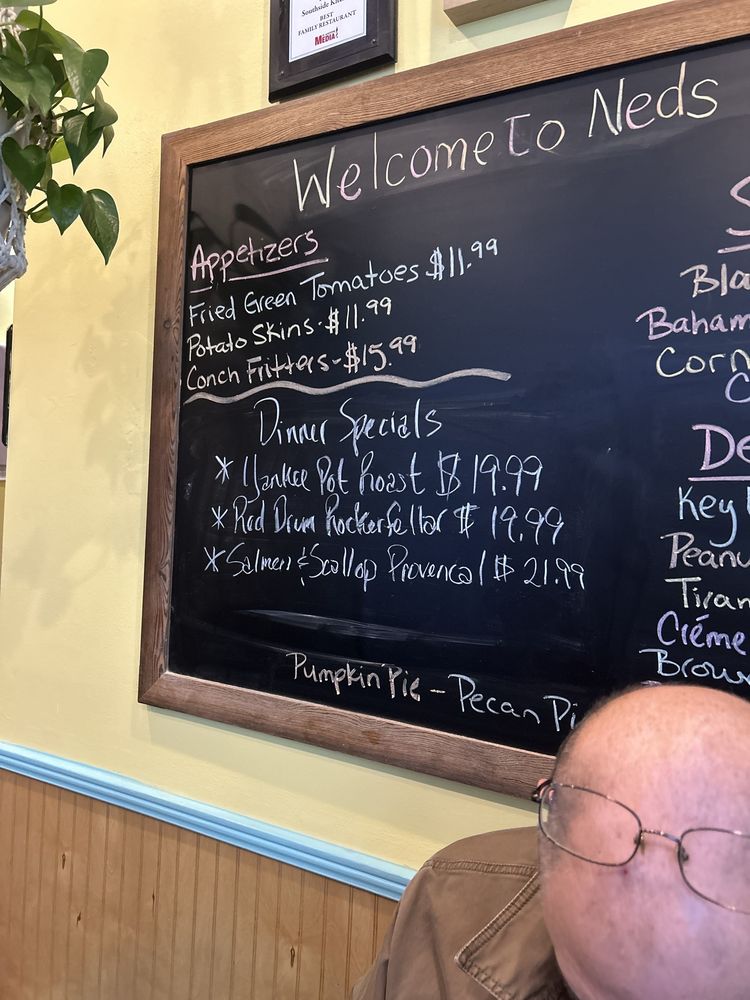 Southside Kit
BEST
FAMILY RESTAURANT
MEDIA
Welcome to Neds
Appetizers
Fried Green Tomatoes $11.99
Potato Skins - $11.99
Conch Fritters - $15.99
Dinner Specials
* Yankee Pot Roast $19.99
* Red Drum Rockerfellar $19.99
* Salmon & Scallop Provencal $21.99
Pumpkin Pie - Pecan Pi
S
Bla
Baham
Corn
C
De
Key
Peanu
Tiram
Créme
Brown